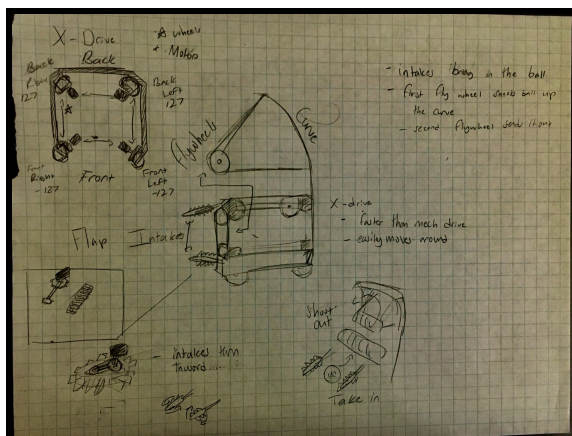 X-Drive
Back
- wheel
Motors
Back
Right
127
Back
Left
127
Front
Right
-127
Front
Front
Left
-127
Flywheels
Curve
Intakes
Flap
- intakes bring in the ball
- first fly wheel sends ball up
the curve
- second flywheel sends it out
X-drive
- faster than mech drive
- easily moves around
- intakes turn
inward....
Shoot
out
Take in